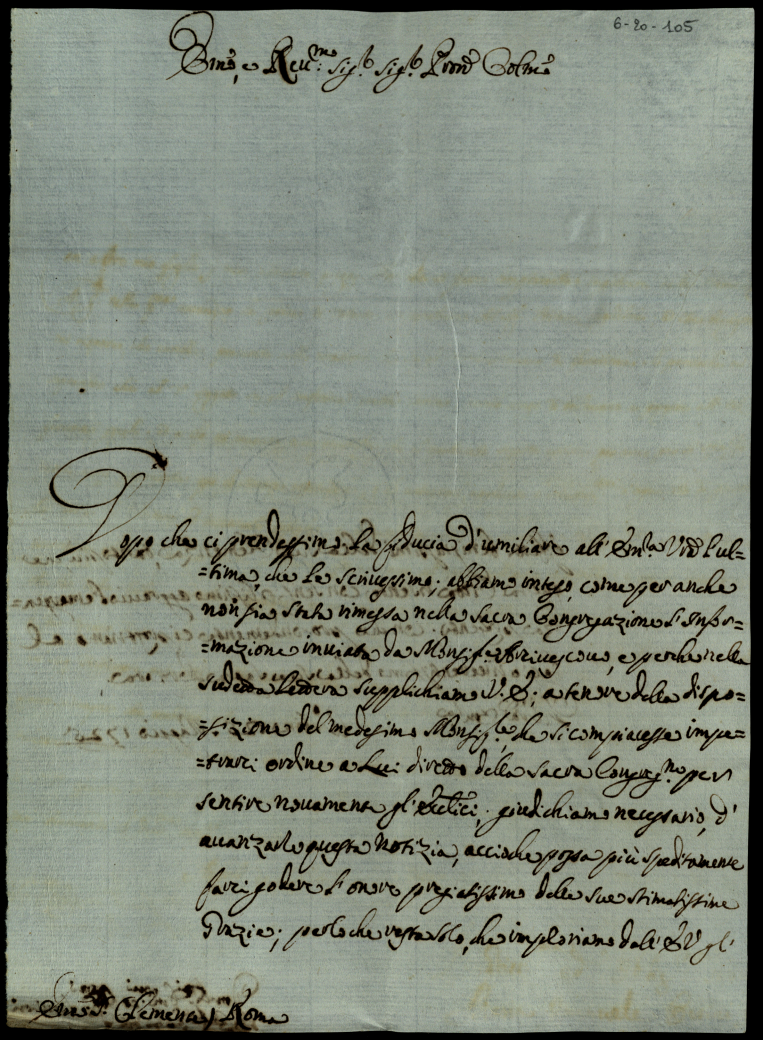 6-20-105
Em̃o, e Reu.mo Sig.r Sig.r Pron̄ Colm̃o
Dopo che ci prendessimo la fiducia d'umiliare all' Em.a Vr̃a l'ul=
=tima, che Le scriuessimo; abbiamo inteso, come per anche
non sia stata rimessa nella Sacra Congregazione l'Infor=
=mazione inuiata da Monsig.r Arciuescouo, e perche nella
sudetta Lettera supplichiamo V. E; a tenore della dispo=
=sizione del medesimo Monsig.re, che si compiacesse impe=
=trarci ordine a Lui diretto della Sacra Congreg.ne per
sentire nouamente gl' ; giudichiamo necessario, d'
auanzarle questa Notizia, accioche possa più speditamente
farci godere l'onore pregiatissimo delle sue stimatissime
Grazie; perloche resta solo, che imploriamo dall' E V gl'
Clemence / Roma